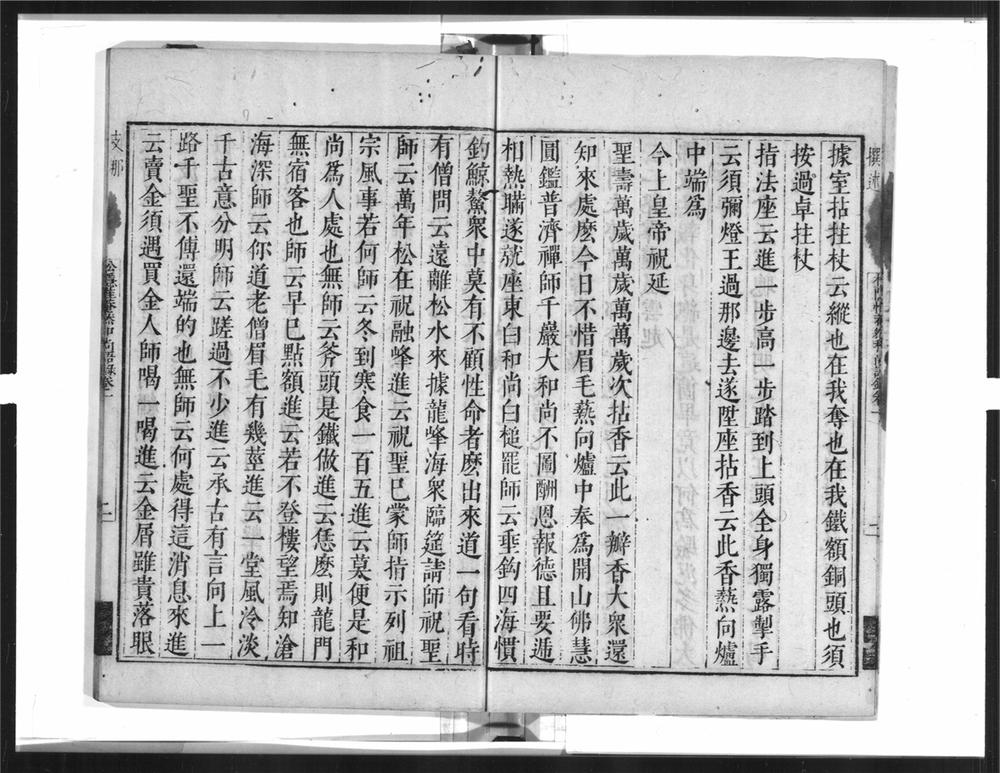 撰述
據室拈拄杖云縱也在我奪也在我鐵額銅頭也須
按過卓拄杖
指法座云進一步高一步踏到上頭全身獨露掣手
云須彌燈王過那邊去遂陞座拈香云此香爇向爐
中端為
今上皇帝祝延
聖壽萬歲萬歲萬萬歲次拈香云此一瓣香大眾還
知來處麼今日不惜眉毛爇向爐中奉為開山佛慧
圓鑑普濟禪師千巖大和尚不圖酬恩報德且要遞
相熱瞞遂就座東白和尚白槌罷師云垂鈎四海慣
釣鯨鰲眾中莫有不顧性命者麼出來道一句看時
有僧問云遠離松水來據龍峰海眾臨筵請師祝聖
師云萬年松在祝融峰進云祝聖已蒙師指示列祖
宗風事若何師云冬到寒食一百五進云莫便是和
尚為人處也無師云斧頭是鐵做進云恁麼則龍門
無宿客也師云早已點額進云若不登樓望焉知滄
海深師云你道老僧眉毛有幾莖進云一堂風冷淡
千古意分明師云蹉過不少進云承古有言向上一
路千聖不傳還端的也無師云何處得這消息來進
云賣金須遇買金人師喝一喝進云金屑雖貴落眼
支那